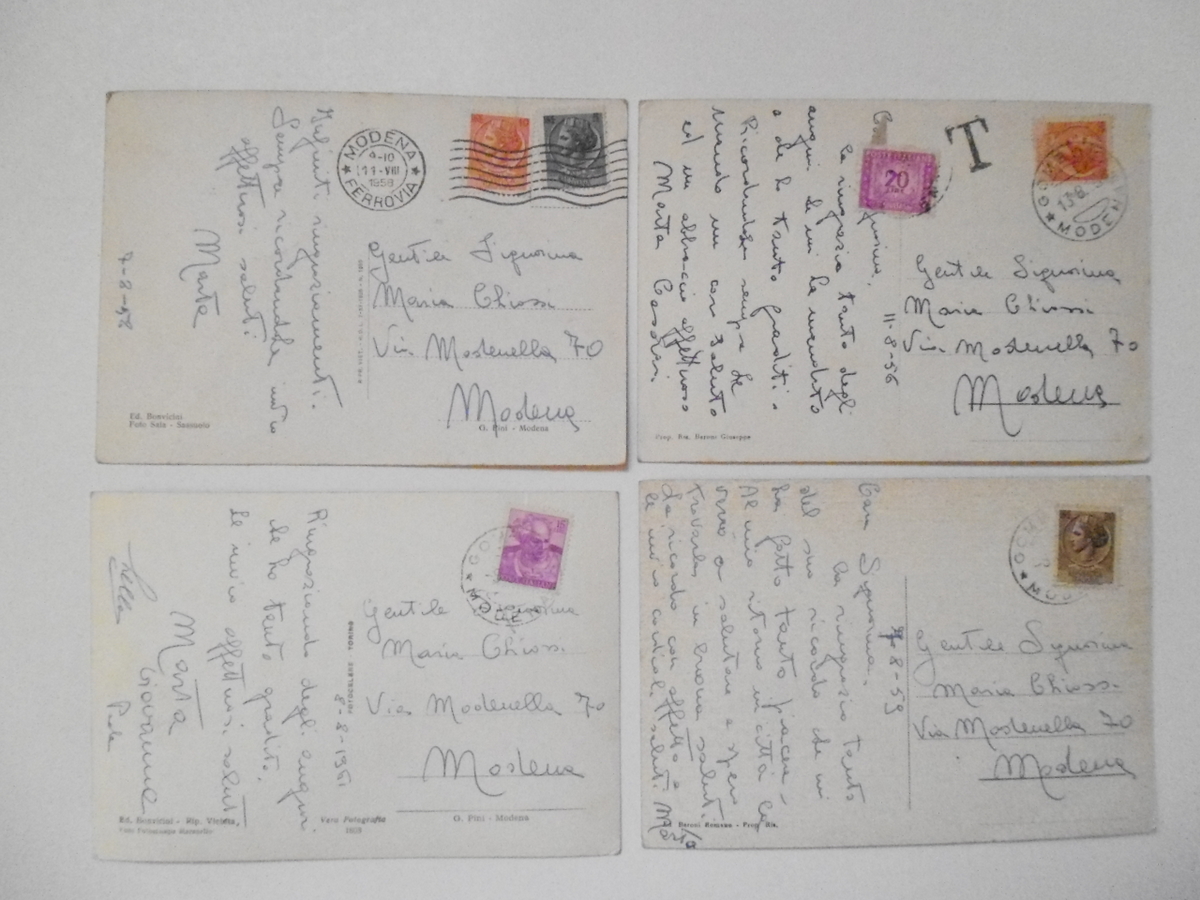 Infiniti ringraziamenti.
Sempre ricordandola invio
affettuosi saluti
Marta
7-8-58
MODENA
9-10
11-VIII
1958
FERROVIA
Gentile Signorina
Maria Chiossi
Via Modenella 70
Modena
Ed. Bonvicini
Foto Sala - Sassuolo
G. Pini - Modena
Signorina,
la ringrazio tanto degli
auguri che mi ha mandato
e che ho tanto graditi.
Ricordandola sempre Le
mando un caro saluto
ed un abbraccio affettuoso
Marta
11-8-56
20
T
13-8
MODENA
Gentile Signorina
Maria Chiossi
Via Modenella 70
Modena
Prop. Ris. Baroni Giuseppe
Ringraziando degli auguri
che ho tanto gradito,
Le invio affettuosi saluti
Marta
Giovanna
Lella
8-8-1961
Gentile Signorina
Maria Chiossi
Via Modenella 70
Modena
Ed. Bonvicini - Rip. Vietata
Vera Fotografia
G. Pini - Modena
Cara Signorina,
La ringrazio tanto
del suo ricordo che mi
ha fatto tanto piacere.
Al mio ritorno in città La
verrò a salutare e spero
trovarla in buona salute.
La ricordo con affetto e
Le invio cordiali saluti. Marta
8-59
Gentile Signorina
Maria Chiossi
Via Modenella 70
Modena
Baroni Romano - Prop. Ris.